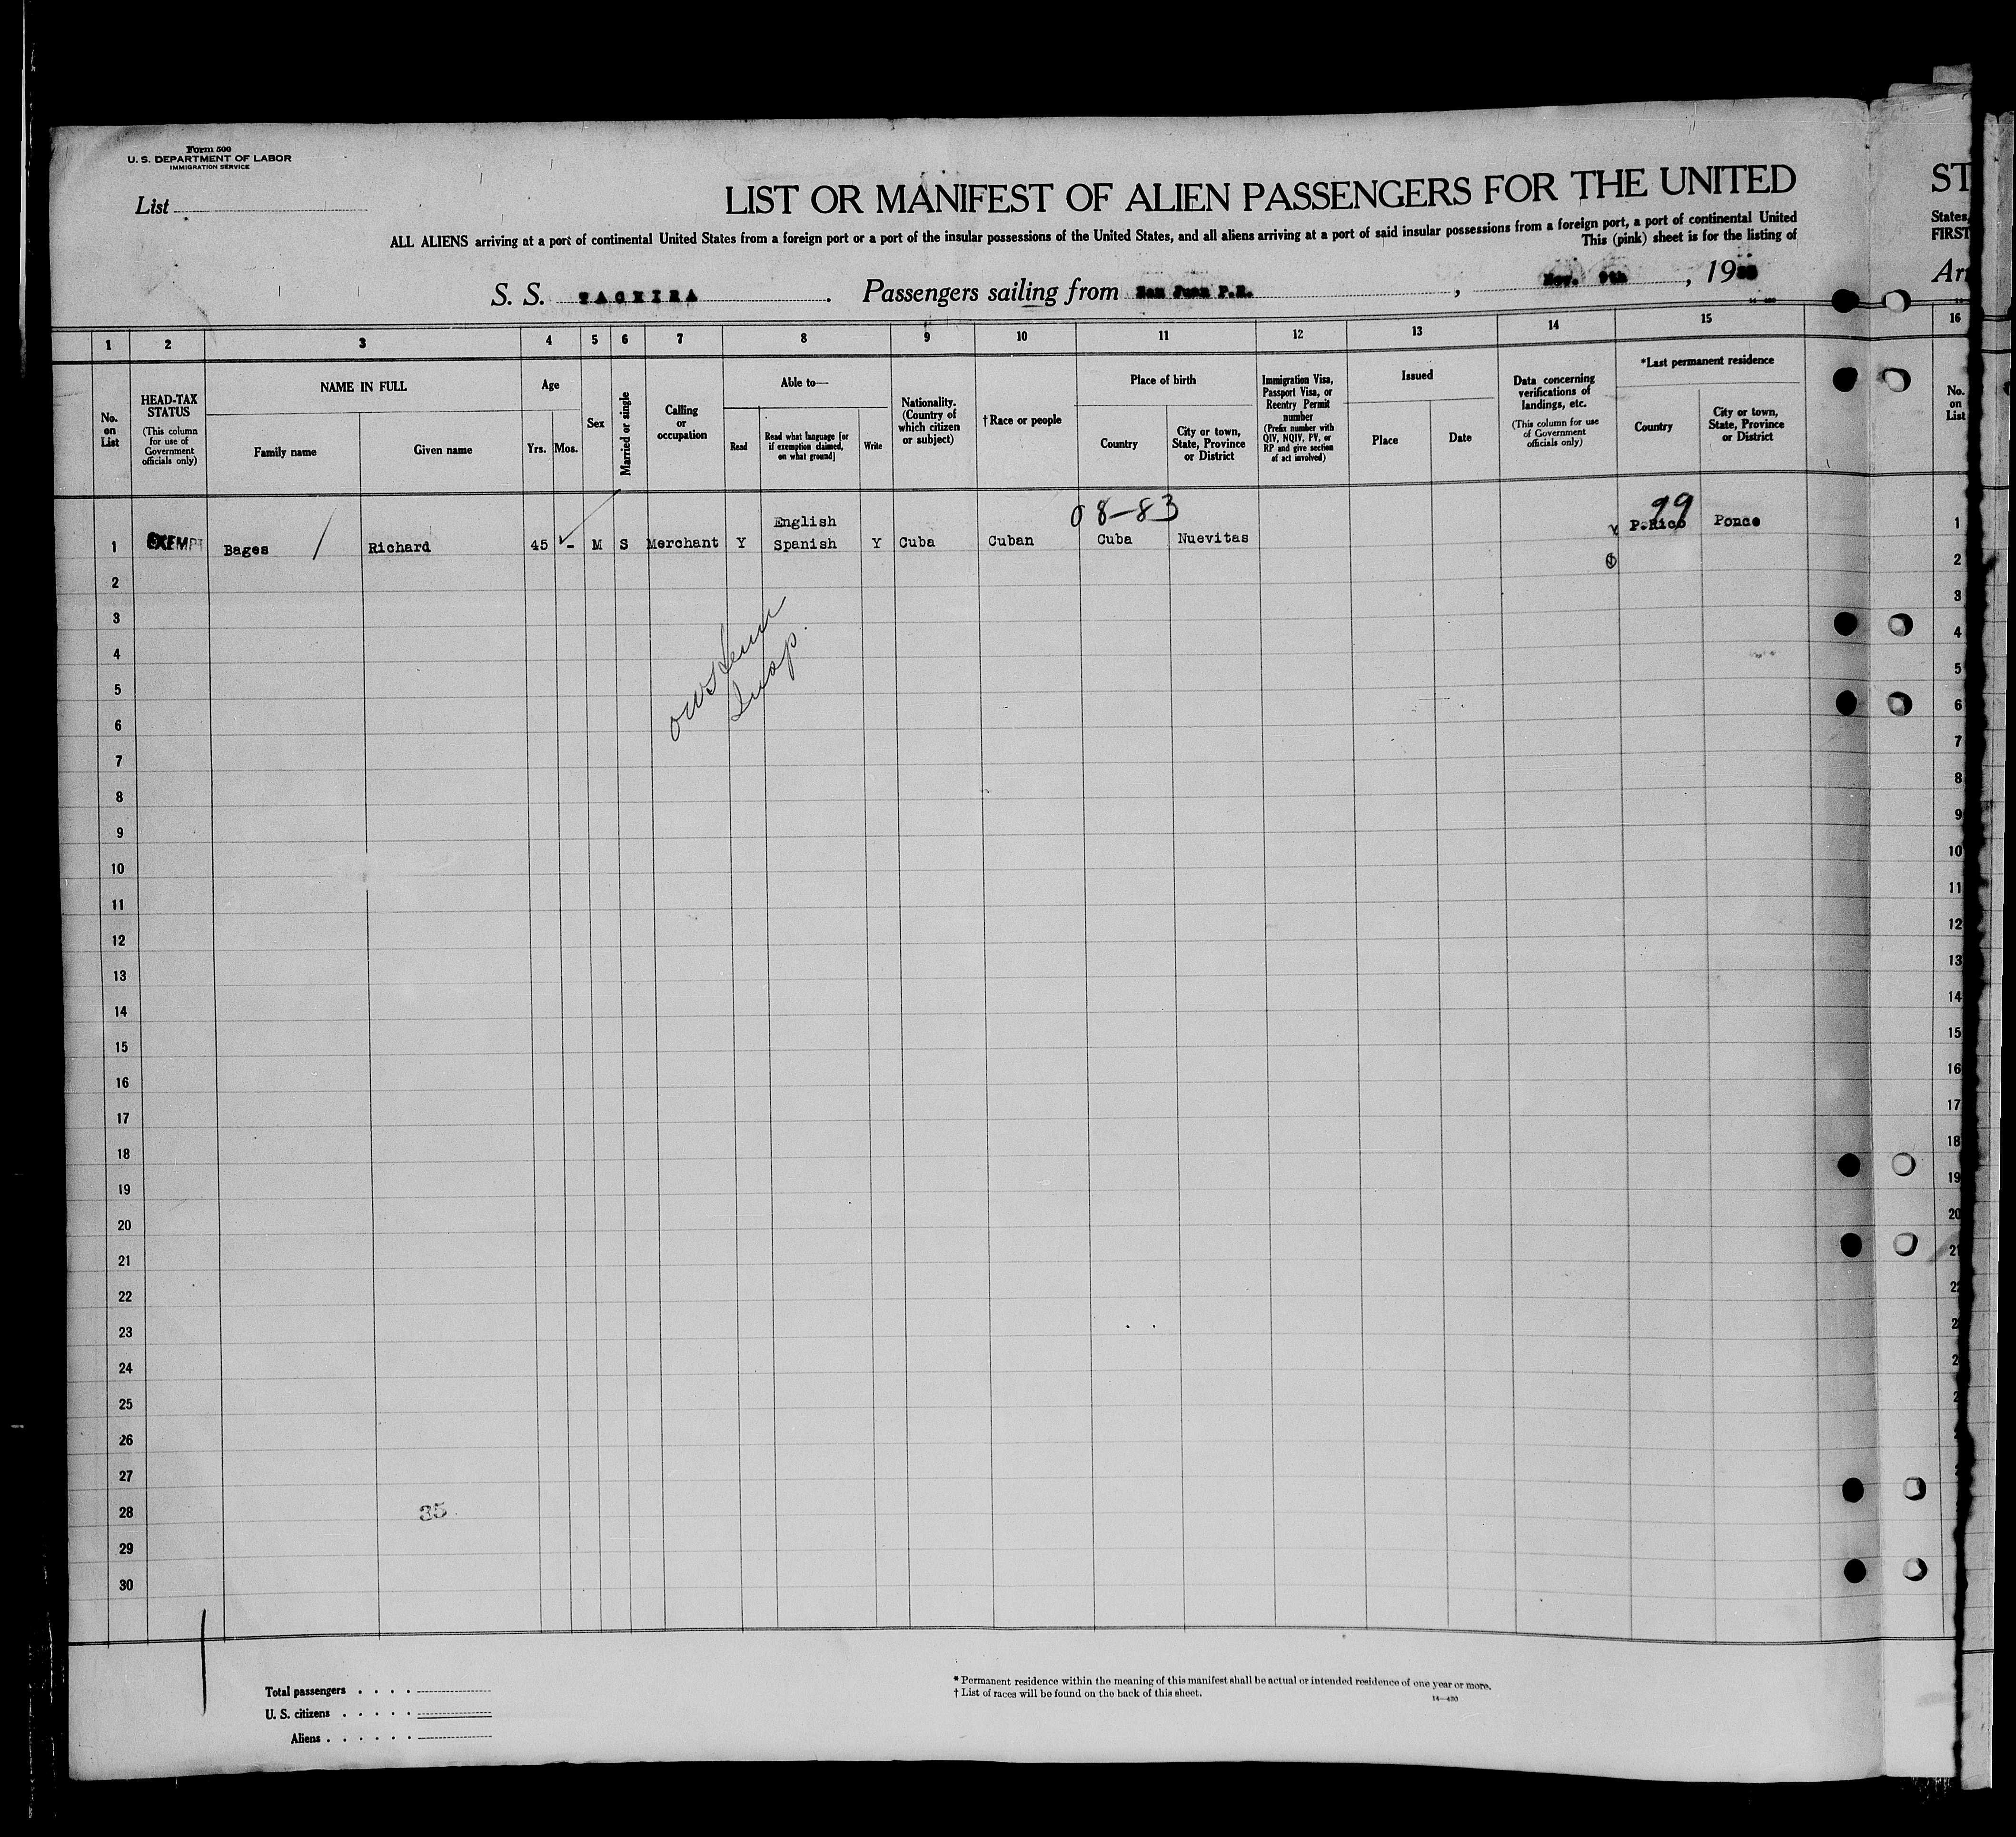 Form 500
U. S. DEPARTMENT OF LABOR
IMMIGRATION SERVICE
List
LIST OR MANIFEST OF ALIEN PASSENGERS FOR THE UNITED
ST
ALL ALIENS arriving at a port of continental United States from a foreign port or a port of the insular possessions of the United States, and all aliens arriving at a port of said insular possessions from a foreign port, a port of continental United
States,
This (pink) sheet is for the listing of
FIRST
S. S. TACHIRA . Passengers sailing from San Juan P.R. , Nov. 9th , 19
Arr
1 2 3 4 5 6 7 8 9 10 11 12 13 14 15 16
No. on List
HEAD-TAX STATUS
(This column for use of Government officials only)
NAME IN FULL
Family name
Given name
Age
Yrs. Mos.
Sex
Married or single
Calling or occupation
Able to—
Read
Read what language [or if exemption claimed, on what ground]
Write
Nationality. (Country of which citizen or subject)
† Race or people
Place of birth
Country
City or town, State, Province or District
Immigration Visa, Passport Visa, or Reentry Permit number
(Prefix number with QIV, NQIV, PV, or RP and give section of act involved)
Issued
Place
Date
Data concerning verifications of landings, etc.
(This column for use of Government officials only)
*Last permanent residence
Country
City or town, State, Province or District
No. on List
08-83
99
English
1 EXEMPT Bages Richard 45 - M S Merchant Y Spanish Y Cuba Cuban Cuba Nuevitas P.Rico Ponce 1
2 2
3 3
4 4
5 5
6 6
7 7
8 8
9 9
10 10
11 11
12 12
13 13
14 14
15 15
16 16
17 17
18 18
19 19
20 20
21 21
22 22
23
24
25
26
27
28 35
29
30
Total passengers . . . .
U. S. citizens . . . . .
Aliens . . . . . .
* Permanent residence within the meaning of this manifest shall be actual or intended residence of one year or more.
† List of races will be found on the back of this sheet.
14—430